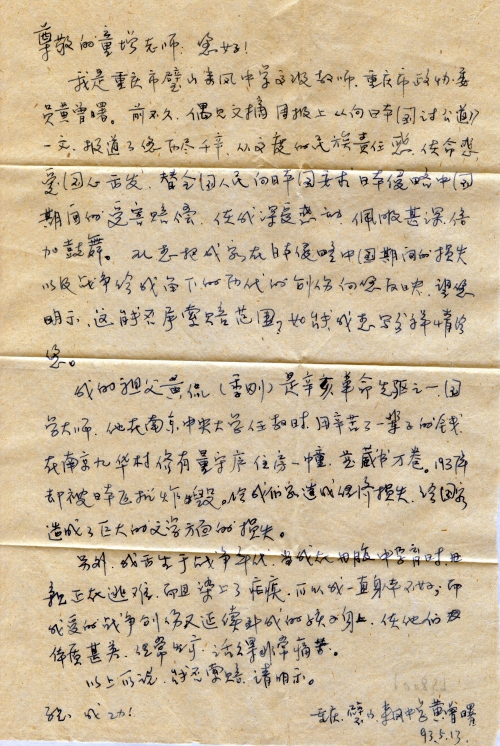 尊敬的童增老师：您好！
我是重庆市璧山来凤中学文汉教师，重庆市政协委
员黄曾曙。前不久，偶见文摘周报上《向日本国讨公道》
一文，报道了您历尽千辛，以文度的民族责任感、使命感，
爱国心出发，替全国人民向日本国要求日本侵略中国
期间的受害赔偿，使我深受感动，佩服甚深，倍
加鼓舞。我想把我家在日本侵略中国期间的损失
以及战争给我留下的两代的创伤向您反映，望您
明示，这能不属索赔范围，如能我想写详情给
您。
我的祖父黄侃（季刚）是辛亥革命先驱之一，国
学大师，他在南京中央大学任教时，用辛苦了一辈子的钱
在南京九华村修有量守庐住房一幢，并藏书万卷。1937年
却被日本匪机炸毁。给我们家造成经济损失，给国家
造成了巨大的文学方面的损失。
另外，我出生于战争年代，当我在母腹中孕育时，母
亲正在逃难，而且染上了疟疾，所以我一直身体不好，而
我受的战争创伤又延续到我的孩子身上，使他们
体质甚差，经常生病，活得非常痛苦。
以上所说，能否索赔，请明示。
祝 成功！
重庆璧山来凤中学黄曾曙
93.5.13.